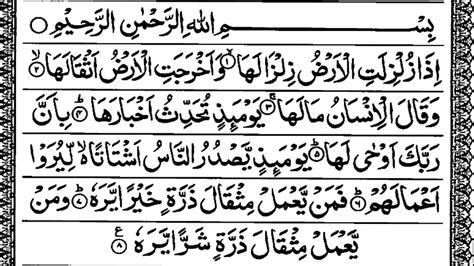 بِسْمِ اللّٰهِ الرَّحْمٰنِ الرَّحِيْمِ ○
اِذَا زُلْزِلَتِ الْاَرْضُ زِلْزَالَهَا ۙ﴿۱﴾ وَاَخْرَجَتِ الْاَرْضُ اَثْقَالَهَا ۙ﴿۲﴾
وَقَالَ الْاِنْسَانُ مَا لَهَا ۚ﴿۳﴾ يَوْمَئِذٍ تُحَدِّثُ اَخْبَارَهَا ؕ﴿۴﴾ بِاَنَّ
رَبَّكَ اَوْحٰى لَهَا ؕ﴿۵﴾ يَوْمَئِذٍ يَّصْدُرُ النَّاسُ اَشْتَاتًا ۙ۬ لِّيُرَوْا
اَعْمَالَهُمْ ؕ﴿۶﴾ فَمَنْ يَّعْمَلْ مِثْقَالَ ذَرَّةٍ خَيْرًا يَّرَهٗ ؕ﴿۷﴾ وَمَنْ
يَّعْمَلْ مِثْقَالَ ذَرَّةٍ شَرًّا يَّرَهٗ ﴿۸﴾ ع